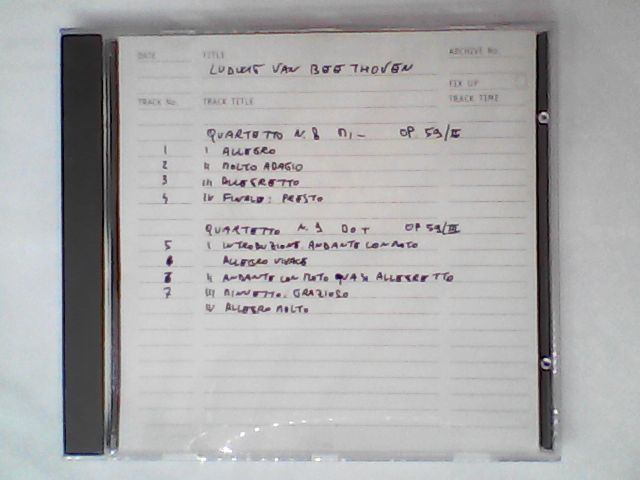 DATE TITLE ARCHIVE No.
LUDWIG VAN BEETHOVEN
FIX UP
TRACK No. TRACK TITLE TRACK TIME
QUARTETTO N. 8 MI - OP. 59/II
1 I ALLEGRO
2 II MOLTO ADAGIO
3 III ALLEGRETTO
4 IV FINALE: PRESTO
QUARTETTO N. 9 DO + OP 59/III
5 I INTRODUZIONE ANDANTE CON MOTO
ALLEGRO VIVACE
6 II ANDANTE CON MOTO QUASI ALLEGRETTO
7 III MINUETTO. GRAZIOSO
IV ALLEGRO MOLTO